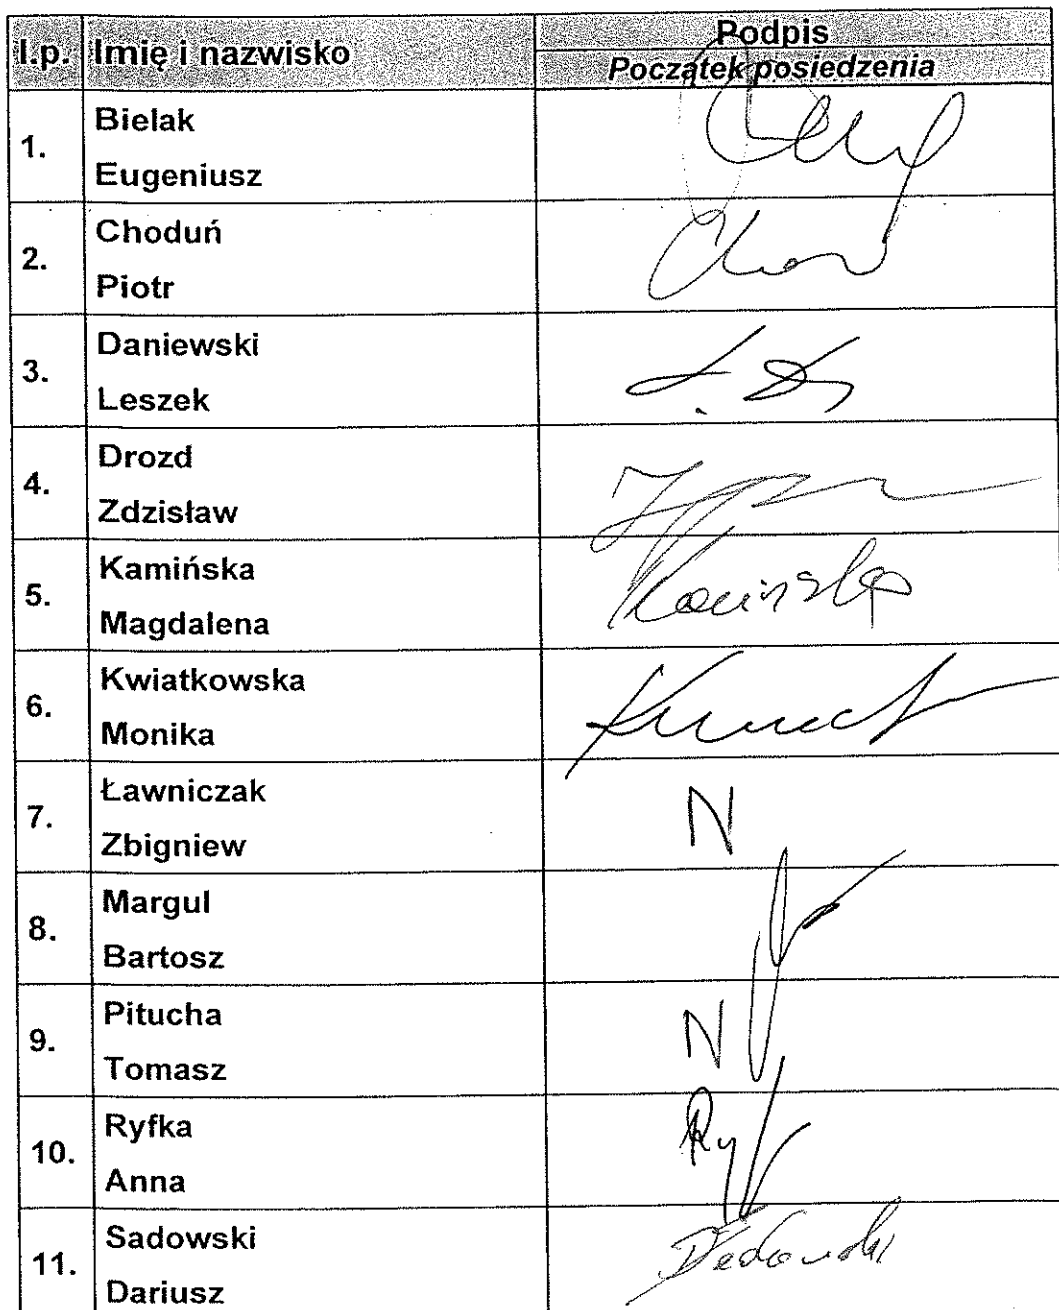 l.p. Imię i nazwisko Podpis
Początek posiedzenia
1. Bielak
Eugeniusz
2. Choduń
Piotr
3. Daniewski
Leszek
4. Drozd
Zdzisław
5. Kamińska
Magdalena
6. Kwiatkowska
Monika
7. Ławniczak N
Zbigniew
8. Margul
Bartosz
9. Pitucha N
Tomasz
10. Ryfka
Anna
11. Sadowski
Dariusz